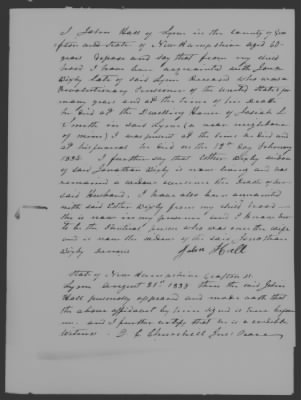 I John Hall of Lyme in the County of Graf
ton and State of New Hampshire aged 60
years depose and say that from my child
hood I have been acquainted with Jona
Bixby late of said Lyme Deceased who was a
Revolutionary Pensioner of the United States for
many years and at the time of his death
he died at the Dwelling House of
Smith in said Lyme (a near neighbour
of mine) I was present at the time he Died and
at his funeral he Died on the 12th day February
I further say that Esther Bixby widow
of said Jonathan Bixby is now living and has
remained a widow ever since the death of her
said Husband. I have also been acquainted
with said Esther Bixby from my child hood
she is now in my presence and I know her
to be the Identical person who was ever the wife
and is now the widow of the said Jonathan
Bixby deceased John Hall
State of New Hampshire Grafton ss.
Lyme August 21st 1838 then the said John
Hall personally appeared and made oath that
the above affidavit by him signed is true before
me. and I further certify that he is a credible
Witness. D. C. Churchill Jus. Peace